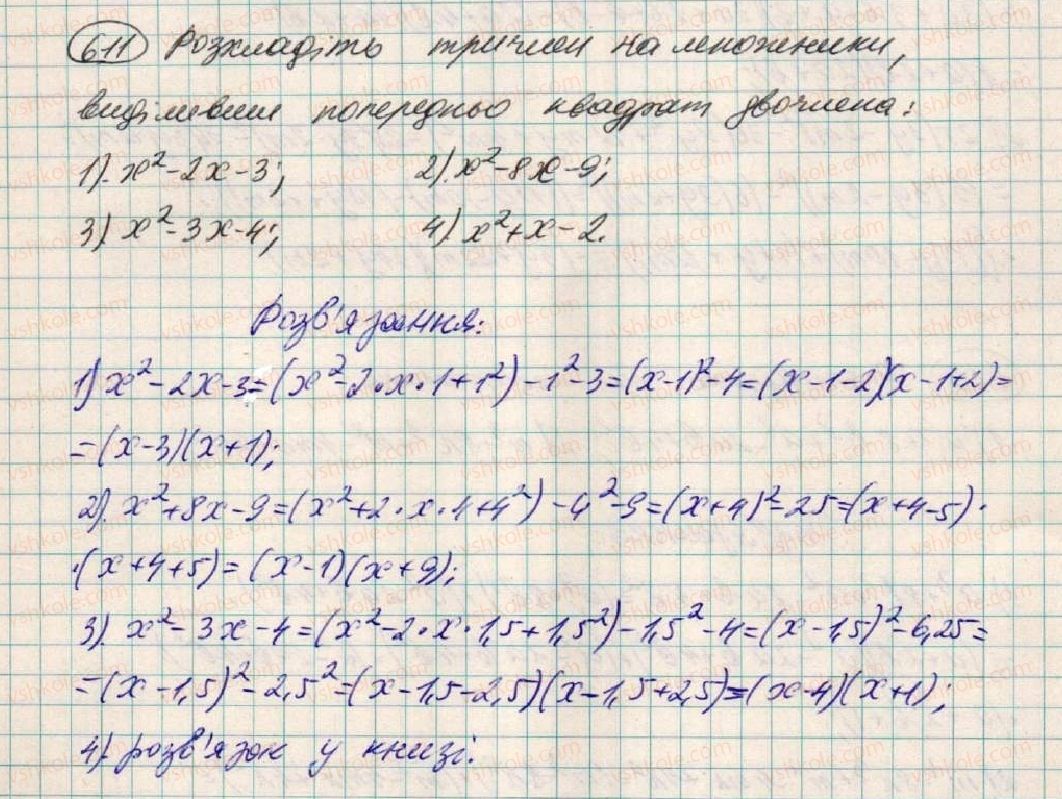 611 Розкладіть тричлен на множники,
виділивши попередньо квадрат двочлена:
1) x²-2x-3; 2) x²-8x-9;
3) x²-3x-4; 4) x²+x-2.
Розв'язання:
1) x²-2x-3=(x²-2·x·1+1²)-1²-3=(x-1)²-4=(x-1-2)(x-1+2)=
=(x-3)(x+1);
2) x²+8x-9=(x²+2·x·4+4²)-4²-9=(x+4)²-25=(x+4-5)·
·(x+4+5)=(x-1)(x+9);
3) x²-3x-4=(x²-2·x·1,5+1,5²)-1,5²-4=(x-1,5)²-6,25=
=(x-1,5)²-2,5²=(x-1,5-2,5)(x-1,5+2,5)=(x-4)(x+1);
4) розв'язок у книзі.